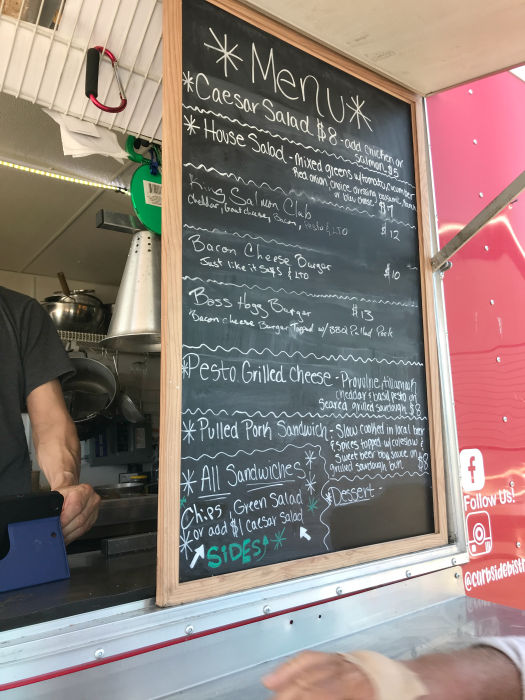 *Menu*
*Caesar Salad $8 - add chicken or
salmon $5
*House Salad - mixed greens w/ tomato, cucumber
Red onion, choice dressing balsamic, ranch
or blu cheese $7
King Salmon Club
cheddar, goat cheese, Bacon, Pesto & LTO $12
Bacon Cheese Burger
Just like it says & LTO $10
Boss Hogg Burger $13
Bacon cheese Burger Topped w/ BBQ Pulled Pork
*Pesto Grilled Cheese - Provolne, tillamook
cheddar & basil pesto on
seared grilled sourdough $8
*Pulled Pork Sandwich - Slow cooked in local beer
& spices topped w/ coleslaw &
sweet beer bbq sauce on
grilled sourdough bun $8
*All Sandwiches*
Chips, Green Salad
or add $1 caesar salad
SIDES!
*Dessert -
f
Follow Us!
@curbsidebist